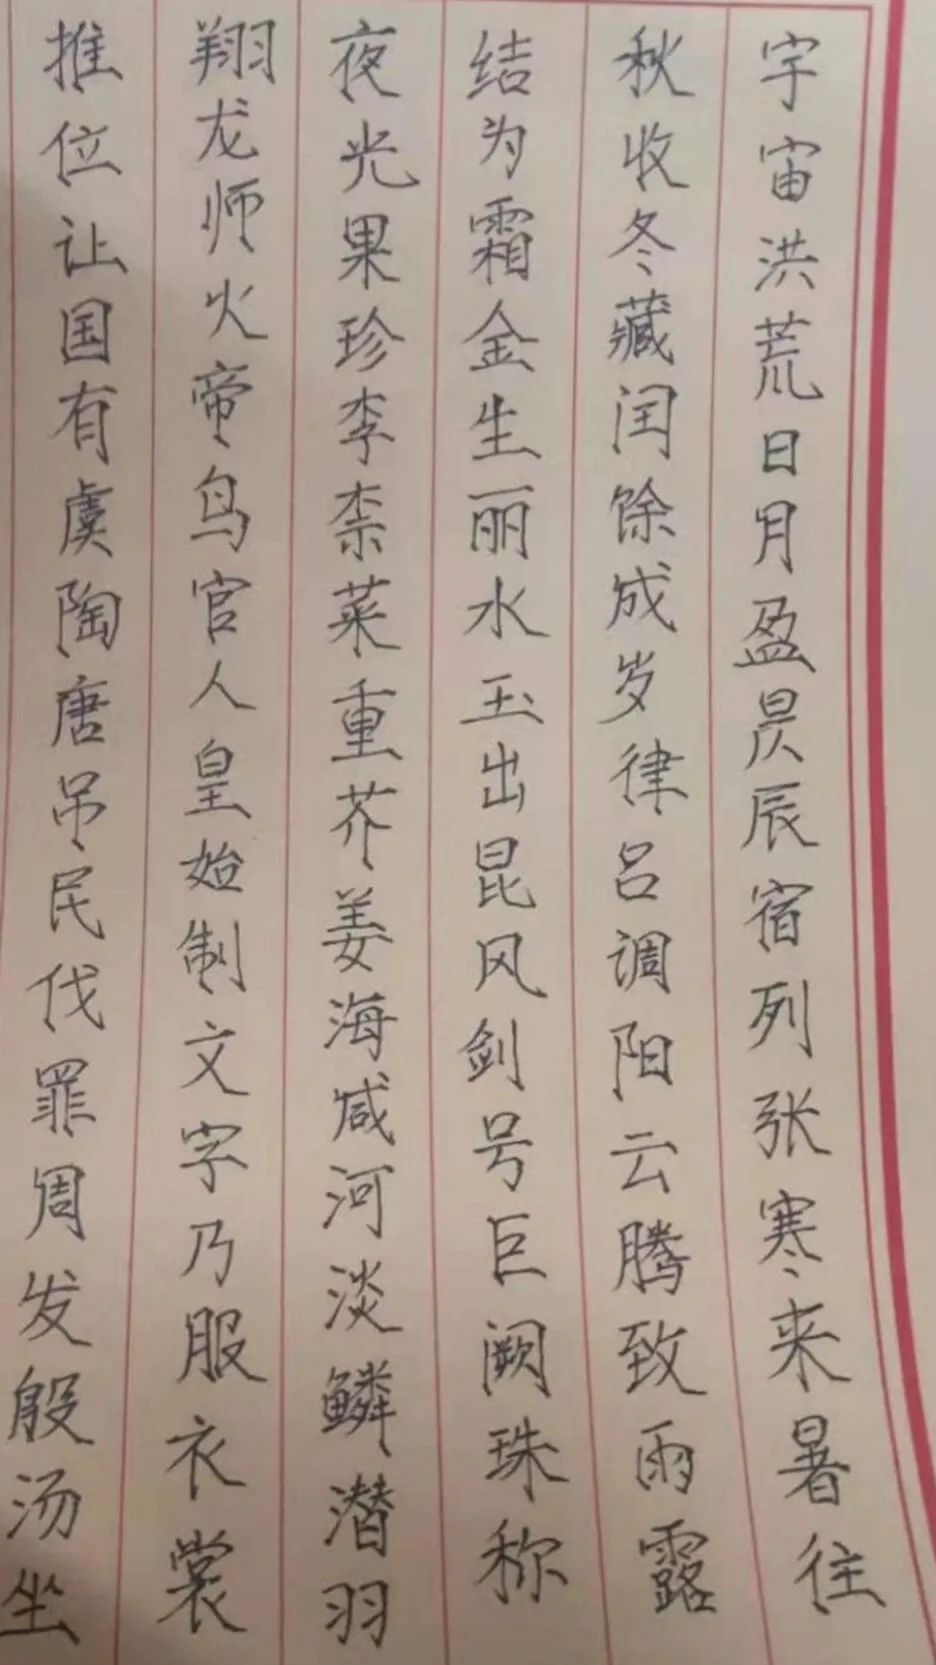 宇宙洪荒日月盈昃辰宿列张寒来暑往
秋收冬藏闰馀成岁律吕调阳云腾致雨露
结为霜金生丽水玉出昆冈剑号巨阙珠称
夜光果珍李柰菜重芥姜海咸河淡鳞潜羽
翔龙师火帝鸟官人皇始制文字乃服衣裳
推位让国有虞陶唐吊民伐罪周发殷汤坐